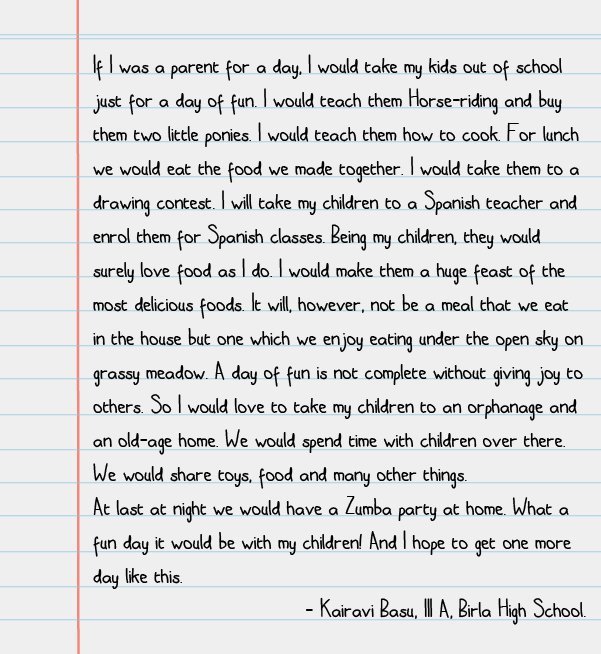 If I was a parent for a day, I would take my kids out of school
just for a day of fun. I would teach them Horse-riding and buy
them two little ponies. I would teach them how to cook. For lunch
we would eat the food we made together. I would take them to a
drawing contest. I will take my children to a Spanish teacher and
enrol them for Spanish classes. Being my children, they would
surely love food as I do. I would make them a huge feast of the
most delicious foods. It will, however, not be a meal that we eat
in the house but one which we enjoy eating under the open sky on
grassy meadow. A day of fun is not complete without giving joy to
others. So I would love to take my children to an orphanage and
an old-age home. We would spend time with children over there.
We would share toys, food and many other things.
At last at night we would have a Zumba party at home. What a
fun day it would be with my children! And I hope to get one more
day like this.
- Kairavi Basu, III A, Birla High School.